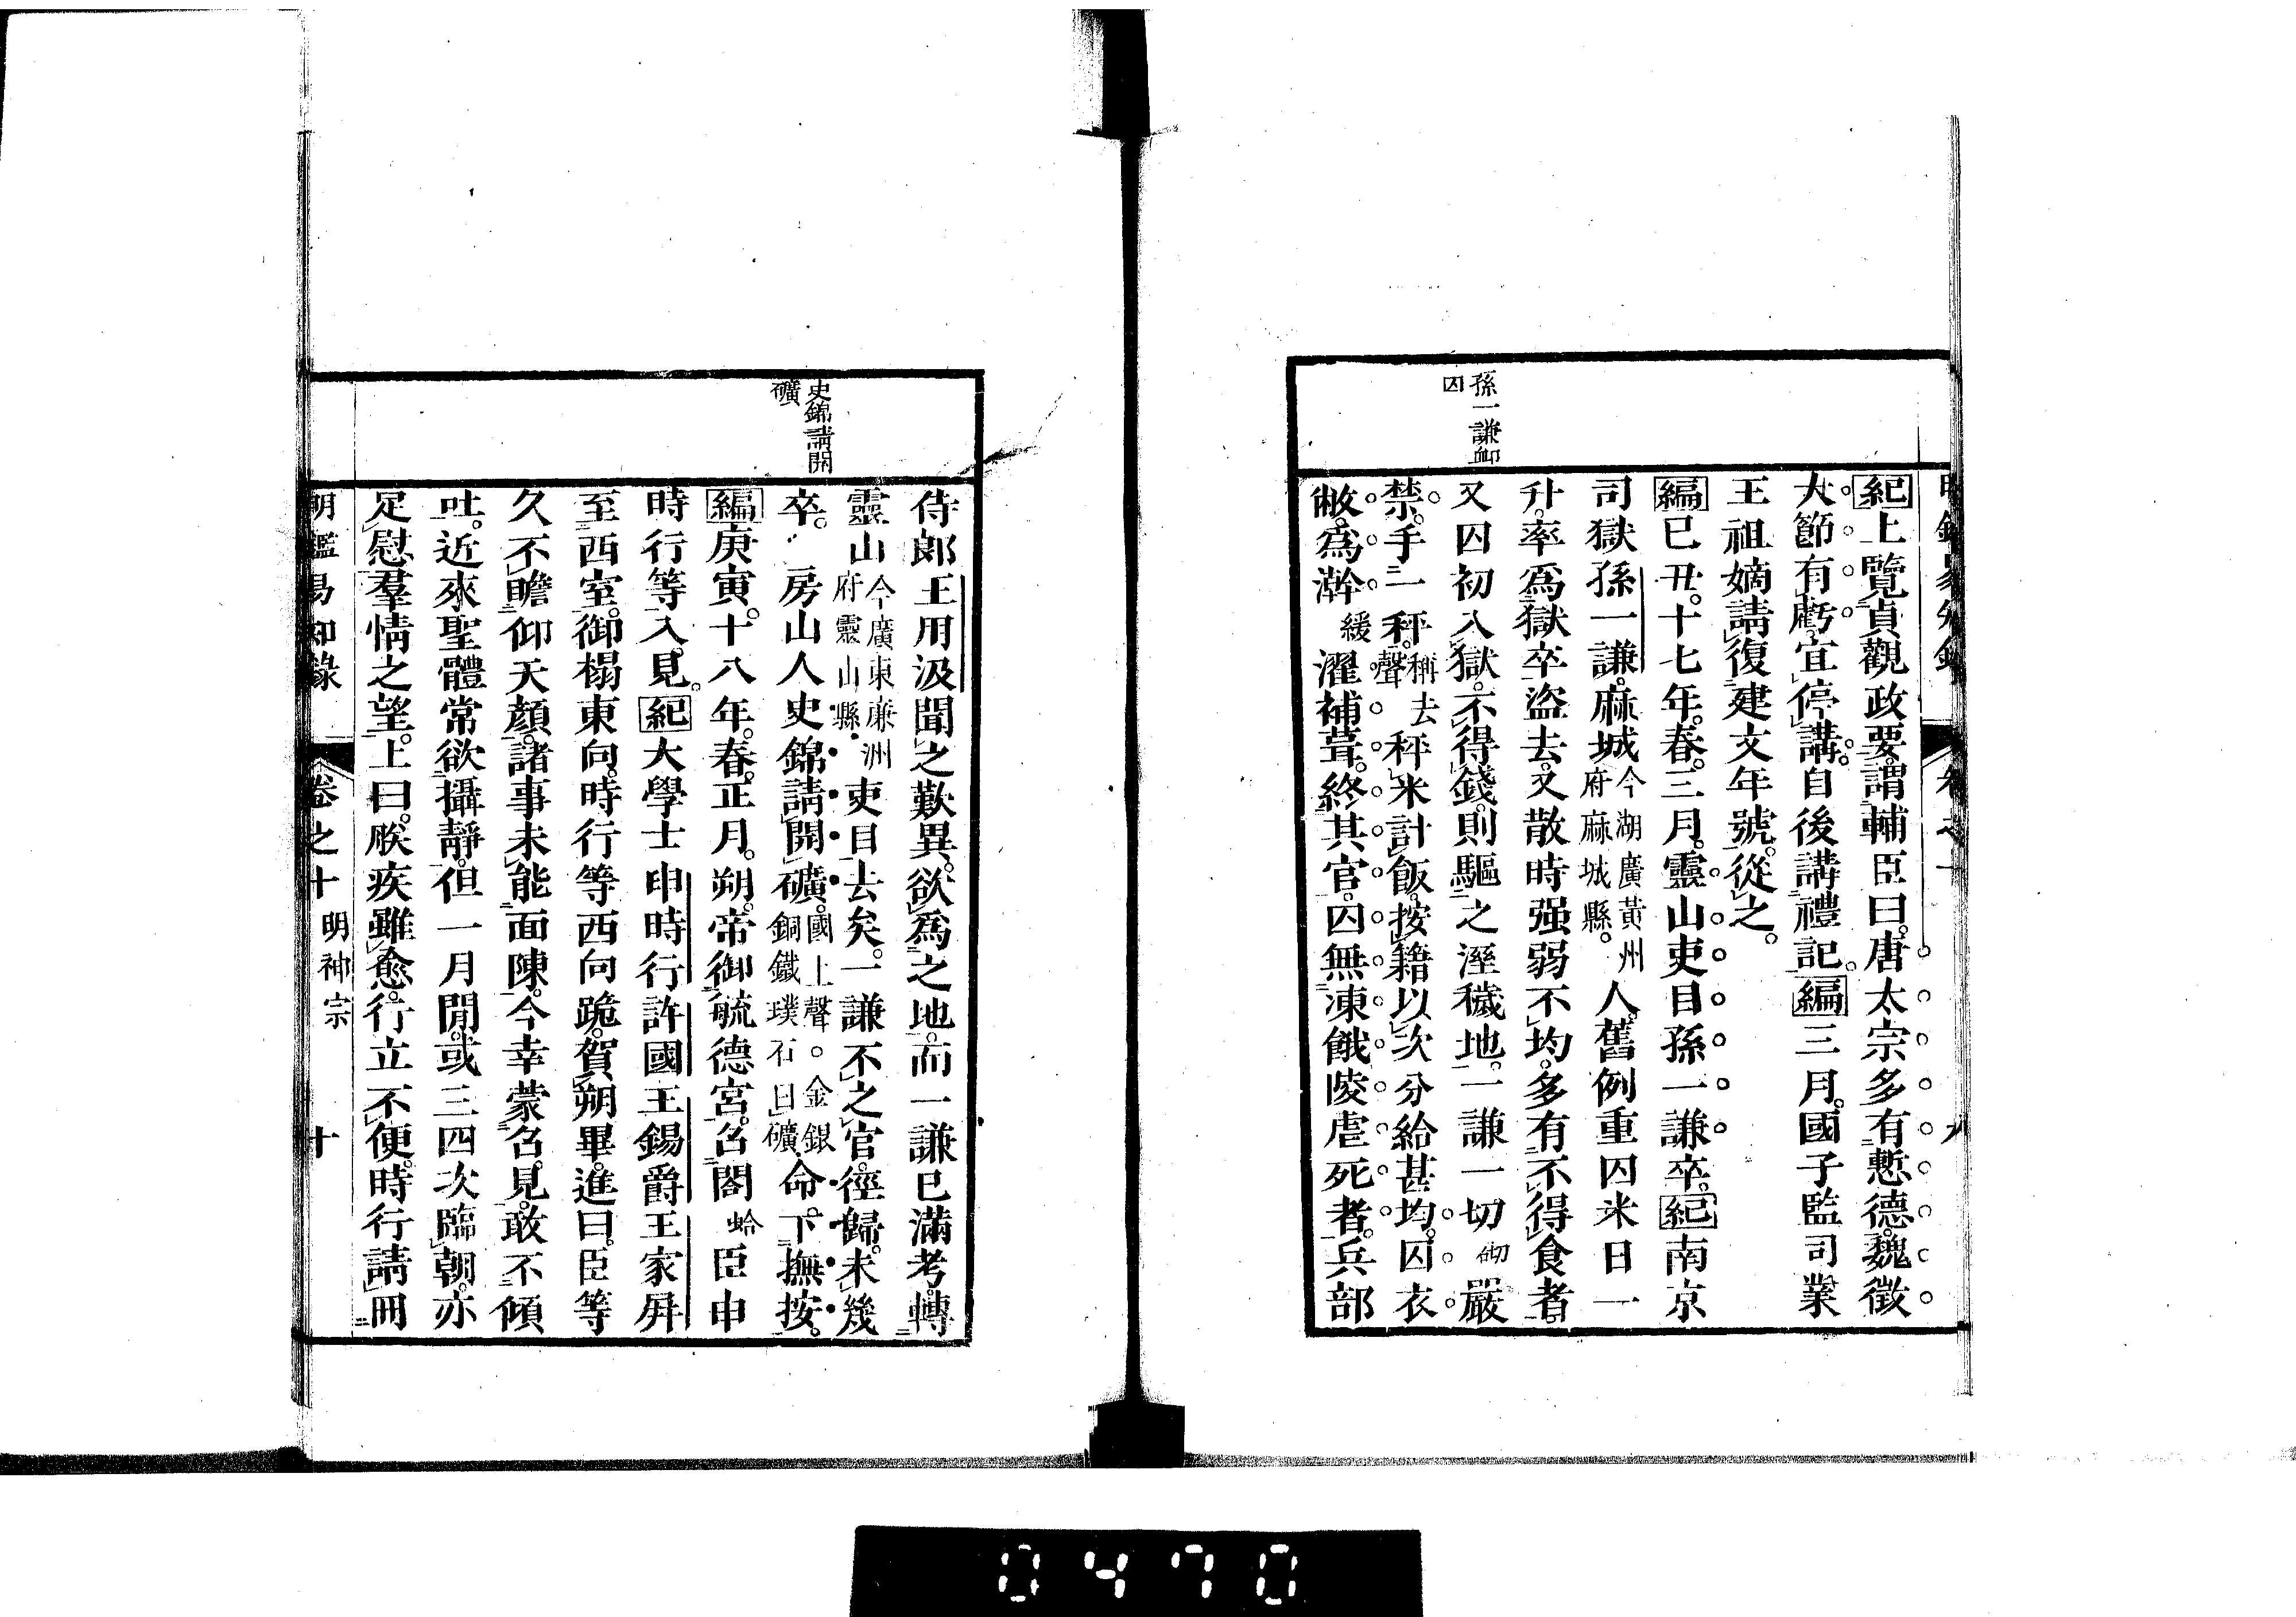 孫一謙卹
囚
紀上覽貞觀政要。謂輔臣曰。唐太宗多有慙德。魏徵
大節有虧。宜停講。自後講禮記。編三月。國子監司業
王祖嫡請復建文年號。從之。
編已丑。十七年。春。三月。靈山吏目孫一謙卒。紀南京
司獄孫一謙。麻城今湖廣黃州府麻城縣。人。舊例重囚米日一
升。率爲獄卒盜去。又散時强弱不均。多有不得食者。
又囚初入獄。不得錢。則驅之溼穢地。一謙一切嚴
禁。手一秤。稱去聲秤米計飯。按籍以次分給甚均。囚衣
敝。爲澣緩濯補葺。終其官。囚無凍餓陵虐死者。兵部
九
史錦請開
礦
侍郎王用汲聞之歎異。欲爲之地。而一謙已滿考。轉
靈山今廣東廉洲府靈山縣。吏目去矣。一謙不之官。徑歸。未幾
卒。房山人史錦請開礦。國上聲。金銀銅鐵璞石曰礦。命下撫按。
編庚寅。十八年。春。正月。朔。帝御毓德宮。召閣蛤臣申
時行等入見。紀大學士申時行許國王錫爵王家屛
至西室。御榻東向。時行等西向跪。賀朔畢。進曰。臣等
久不瞻仰天顏。諸事未能面陳。今幸蒙召見。敢不傾
吐。近來聖體常欲攝靜。但一月閒。或三四次臨朝。亦
足慰羣情之望。上曰。朕疾雖愈。行立不便。時行請冊
明鑑易知錄 卷之十 明神宗 十
0470